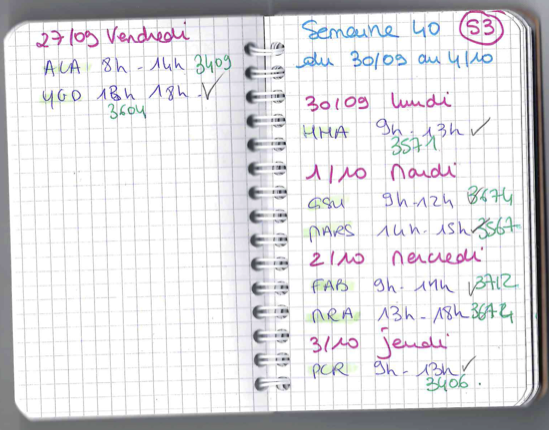 27/09 Vendredi
ACA 8h - 14h 3409
YGO 15h 18h - ✓
3604
Semaine 40 S3
du 30/09 au 4/10
30/09 lundi
HMA 9h - 13h ✓
3571
1/10 Mardi
GSU 9h - 12h 3674
MARS 14h - 15h ✓ 3567
2/10 Mercredi
FAB 9h - 11h ✓ 3712
MRA 13h - 18h 3672
3/10 jeudi
PCR 9h - 13h ✓
3406 .